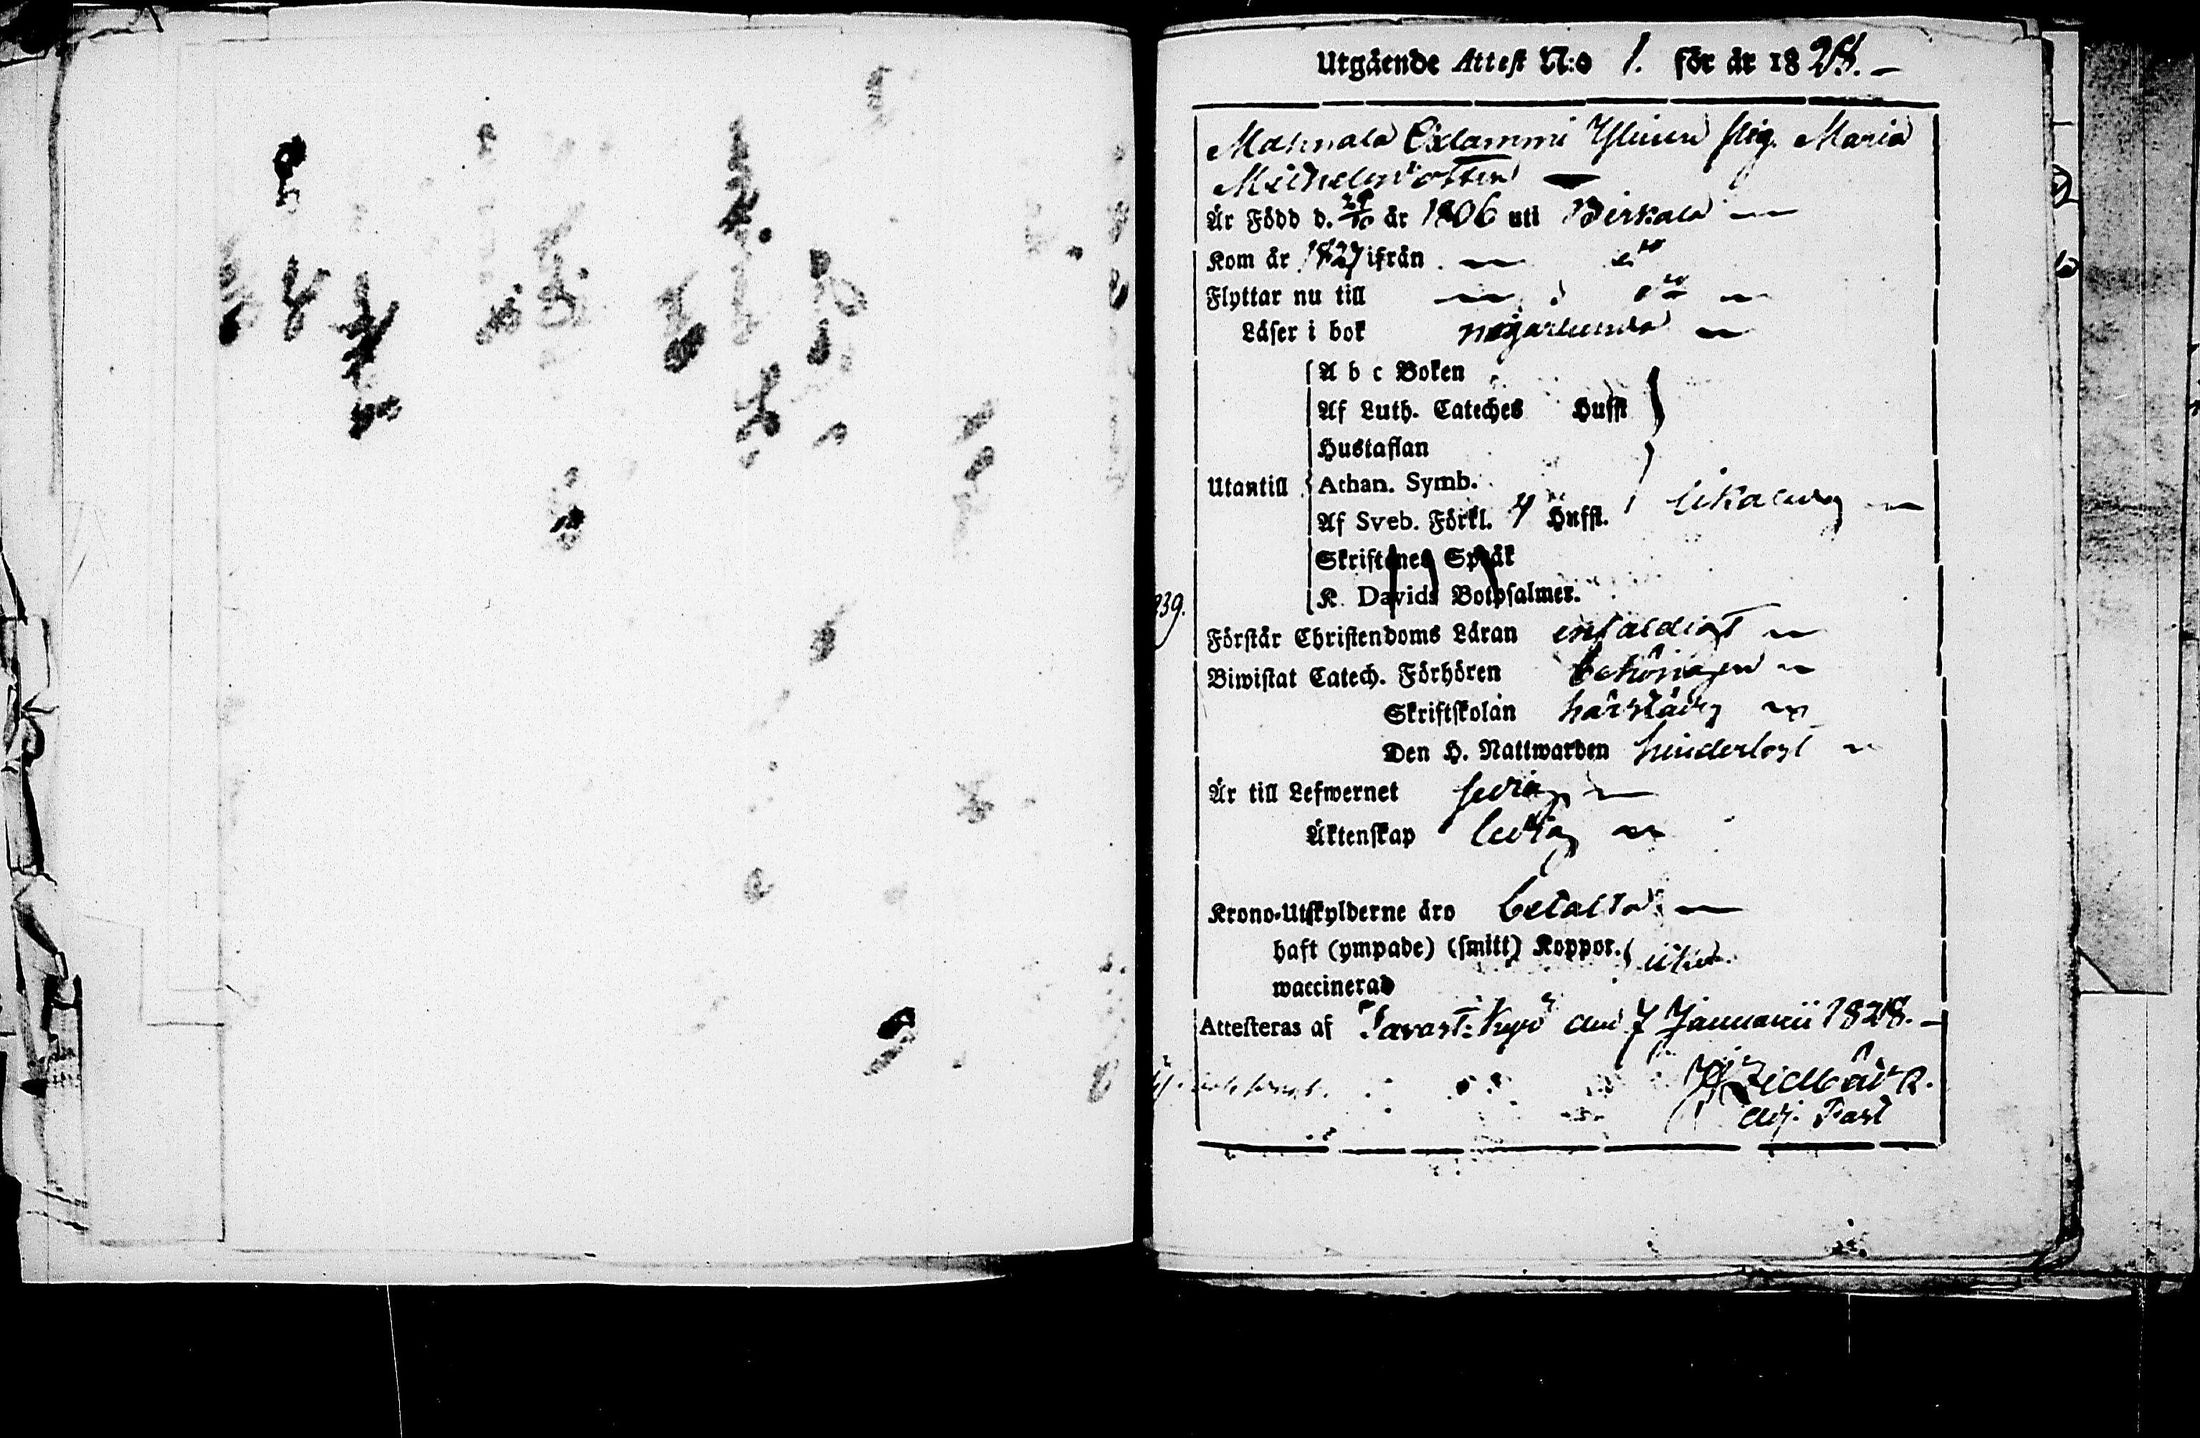 Utgående Attest N:o 1. för år 1828.
Mahnala Oxlammi Pig. Maria
Michelsdotter
Är Född d. 29/10 år 1806 uti Birkala
Kom år 1827 ifrån d:o
Flyttar nu till d:o
Läser i bok någorlunda
A b c Boken
Af Luth. Cateches Hufst
Hustaflan
Utantill Athan. Symb.
Af Sveb. Förkl. 4 Hufst. likaledes
Skriftenes Språk
K. Davids Botpsalmer.
239.
Förstår Christendoms Läran enfaldigt
Biwistat Catech. Förhören behörigen
Skriftskolan härstädes
Den H. Nattwarden hinderlöst
Är till Lefwernet sedig
Äktenskap ledig
Krono-Utskylderne äro betalta
haft (ympade) (smitt) Koppor.
waccinerad
Attesteras af Tavast:Kyrö den 7 Januarii 1828.
Adj. Past